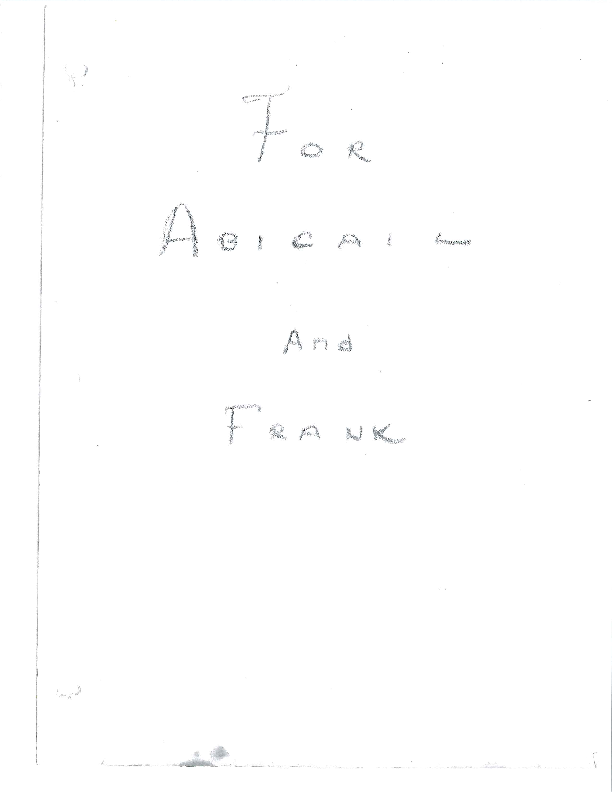 For
Abigail
And
Frank